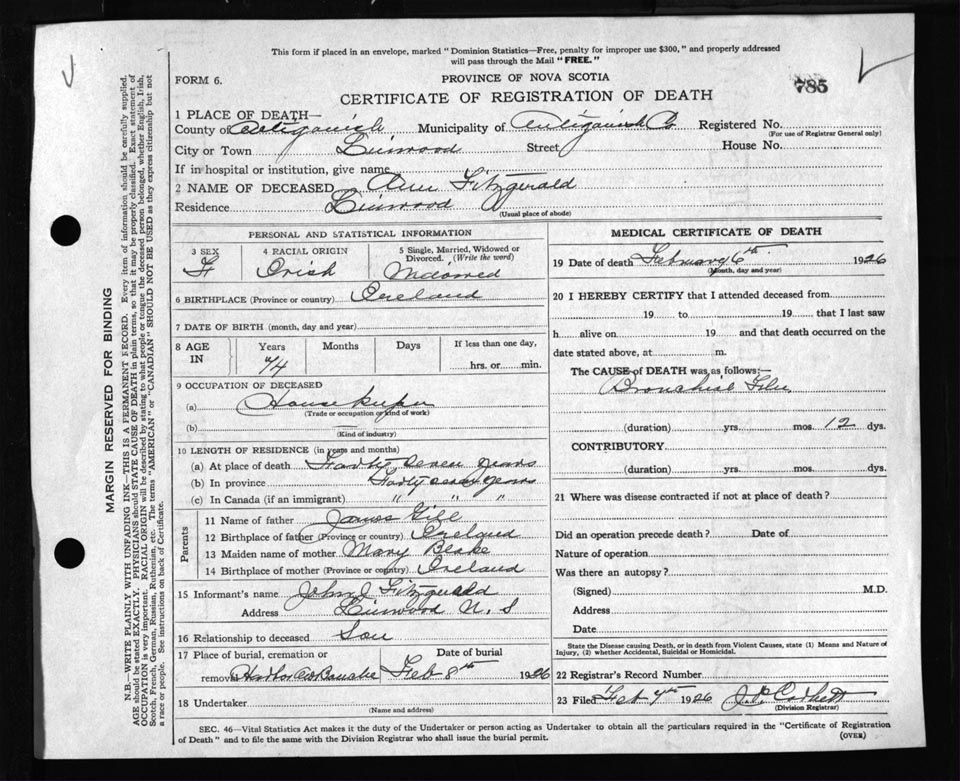 This form if placed in an envelope, marked "Dominion Statistics—Free, penalty for improper use $300," and properly addressed
will pass through the Mail "FREE."
FORM 6.
PROVINCE OF NOVA SCOTIA
785
CERTIFICATE OF REGISTRATION OF DEATH
1 PLACE OF DEATH—
County of Antigonish Municipality of Antigonish Co Registered No.
(For use of Registrar General only)
City or Town Linwood Street House No.
If in hospital or institution, give name
2 NAME OF DECEASED Ann Fitzgerald
Residence Linwood
(Usual place of abode)
PERSONAL AND STATISTICAL INFORMATION
3 SEX 4 RACIAL ORIGIN 5 Single, Married, Widowed or
Divorced. (Write the word)
F Irish Widowed
6 BIRTHPLACE (Province or country) Ireland
7 DATE OF BIRTH (month, day and year)
8 AGE IN Years Months Days If less than one day,
hrs. or min.
9 OCCUPATION OF DECEASED
(a) House keeper
(Trade or occupation or kind of work)
(b)
(Kind of industry)
10 LENGTH OF RESIDENCE (in years and months)
(a) At place of death Forty seven years
(b) In province Forty seven years
(c) In Canada (if an immigrant) " " "
Parents
11 Name of father James Gill
12 Birthplace of father (Province or country) Ireland
13 Maiden name of mother Mary Blake
14 Birthplace of mother (Province or country) Ireland
15 Informant's name John Fitzgerald
Address Linwood N. S
16 Relationship to deceased Son
17 Place of burial, cremation or Date of burial
removal Harbor au Bouche Feb 8th 1926
18 Undertaker
(Name and address)
MEDICAL CERTIFICATE OF DEATH
19 Date of death February 6th 1926
(Month, day and year)
20 I HEREBY CERTIFY that I attended deceased from
19 to 19 that I last saw
h alive on 19 and that death occurred on the
date stated above, at m.
The CAUSE of DEATH was as follows:
(duration) yrs. mos. 12 dys.
CONTRIBUTORY
(duration) yrs. mos. dys.
21 Where was disease contracted if not at place of death?
Did an operation precede death? Date of
Nature of operation
Was there an autopsy?
(Signed) M.D.
Address
Date
State the Disease causing Death, or in death from Violent Causes, state (1) Means and Nature of
Injury, (2) whether Accidental, Suicidal or Homicidal.
22 Registrar's Record Number
23 Filed Feb 7th 1926 J. P. Corbett
(Division Registrar)
SEC. 46—Vital Statistics Act makes it the duty of the Undertaker or person acting as Undertaker to obtain all the particulars required in the "Certificate of Registration
of Death" and to file the same with the Division Registrar who shall issue the burial permit.
(OVER)
MARGIN RESERVED FOR BINDING
N.B.—WRITE PLAINLY WITH UNFADING INK—THIS IS A PERMANENT RECORD. Every item of information should be carefully supplied.
AGE should be stated EXACTLY. PHYSICIANS should STATE CAUSE OF DEATH in plain terms, so that it may be properly classified. Exact statement of
OCCUPATION is very important. RACIAL ORIGIN will be described by stating to what people or tongue the deceased person belonged, whether English, Irish,
Scotch, French, German, Russian, Ruthenian, etc. The terms "AMERICAN" or "CANADIAN" SHOULD NOT BE USED as they express citizenship but not
a race or people. See instructions on back of Certificate.